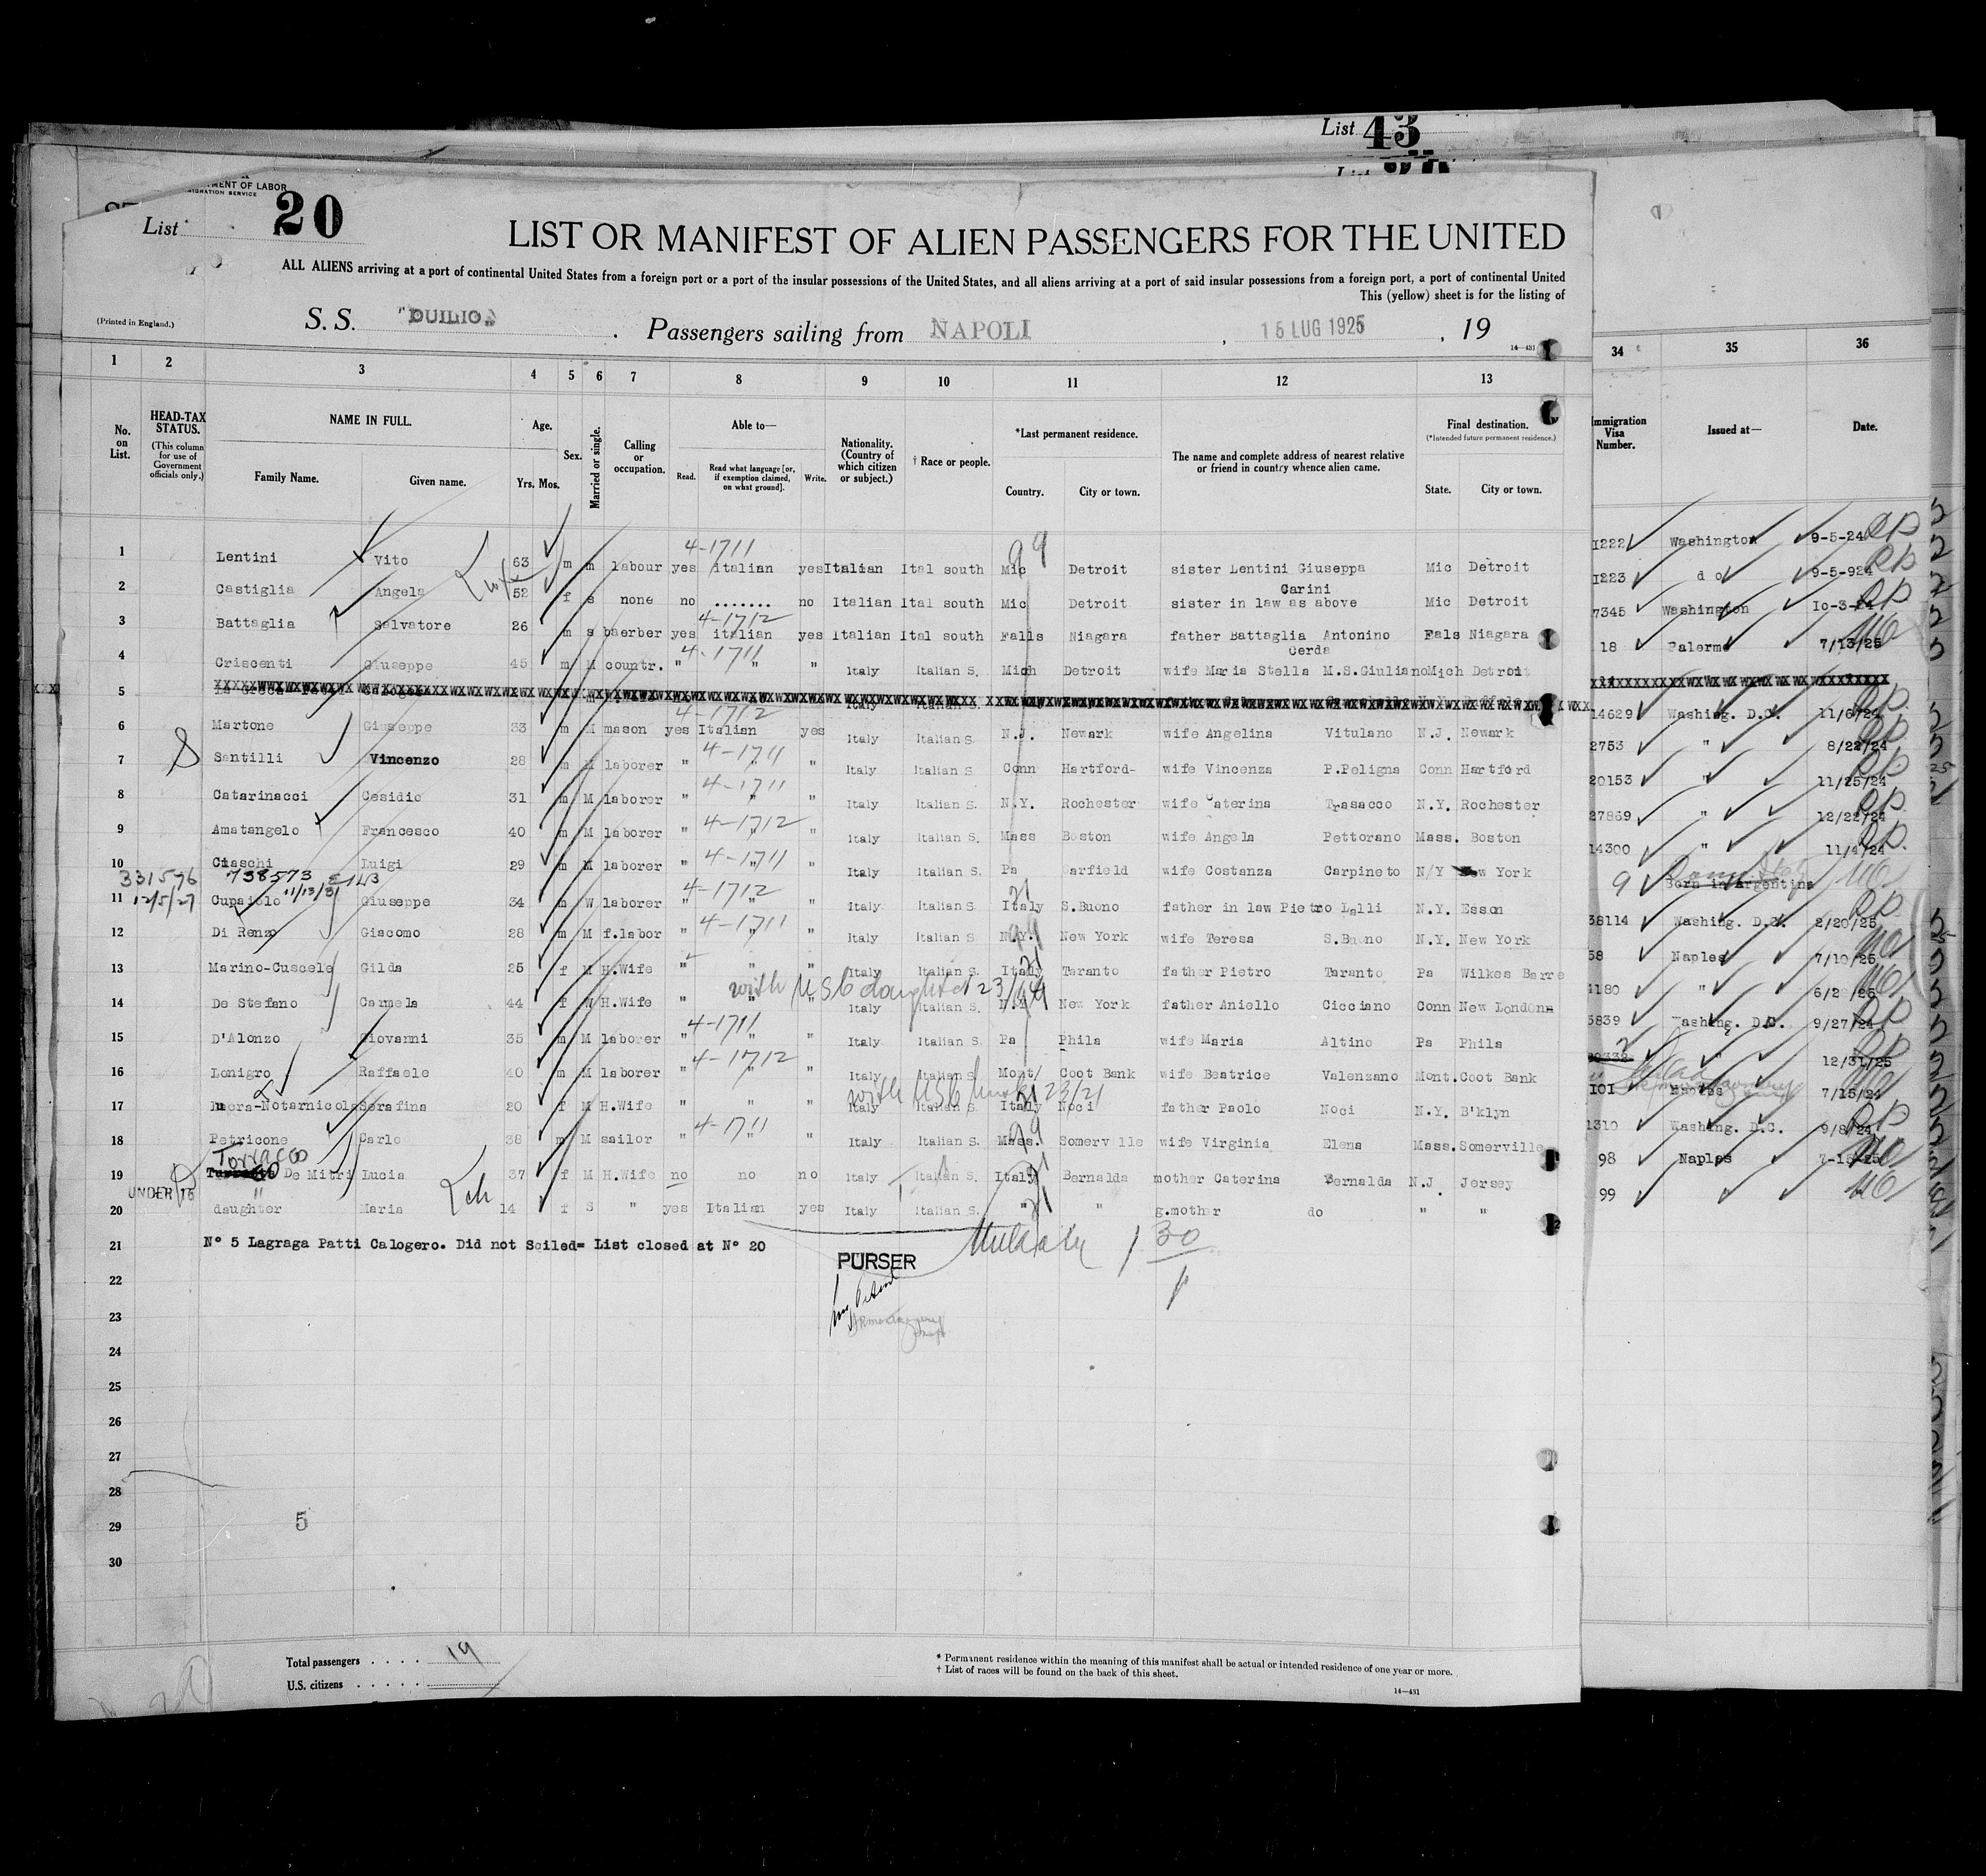 List 43
MENT OF LABOR
IGRATION SERVICE
List 20
LIST OR MANIFEST OF ALIEN PASSENGERS FOR THE UNITED
ALL ALIENS arriving at a port of continental United States from a foreign port or a port of the insular possessions of the United States, and all aliens arriving at a port of said insular possessions from a foreign port, a port of continental United
This (yellow) sheet is for the listing of
(Printed in England.)
S. S. "DUILIO" . Passengers sailing from NAPOLI , 15 LUG 1925 , 19
14—431
1 2 3 4 5 6 7 8 9 10 11 12 13 34 35 36
No. on List.
HEAD-TAX STATUS.
(This column for use of Government officials only.)
NAME IN FULL.
Family Name. Given name.
Age.
Yrs. Mos.
Sex.
Married or single.
Calling or occupation.
Able to—
Read. Read what language [or, if exemption claimed, on what ground]. Write.
Nationality. (Country of which citizen or subject.)
† Race or people.
*Last permanent residence.
Country. City or town.
The name and complete address of nearest relative or friend in country whence alien came.
Final destination.
(*Intended future permanent residence.)
State. City or town.
Immigration Visa Number.
Issued at—
Date.
4-1711
1 Lentini Vito 63 m m labour yes italian yes Italian Ital south Mic Detroit sister Lentini Giuseppa Mic Detroit 1222 Washington 9-5-24
Carini
2 Castiglia Angela 52 f s none no ....... no Italian Ital south Mic Detroit sister in law as above Mic Detroit 1223 do 9-5-924
4-1712
3 Battaglia Salvatore 26 m s baerber yes italian yes Italian Ital south Falls Niagara father Battaglia Antonino Fals Niagara 7345 Washington Io-3-24
4-1711 Cerda
4 Criscenti Giuseppe 45 m M countr. " " " Italy Italian S. Mich Detroit wife Maria Stella M.S.Giuliano Mich Detroit 18 Palermo 7/13/25
5
4-1712
6 Martone Giuseppe 33 m M mason yes Italian yes Italy Italian S. N.J. Newark wife Angelina Vitulano N.J. Newark 14629 Washing. D.C. 11/6/24
4-1711
7 Santilli Vincenzo 28 m M laborer " " " Italy Italian S Conn Hartford- wife Vincenza P.Peligna Conn Hartford 2753 " 8/22/24
4-1711
8 Catarinacci Cesidio 31 m M laborer " " " Italy Italian S. N.Y. Rochester wife Caterina Trasacco N.Y. Rochester 20153 " 11/25/24
4-1712
9 Amatangelo Francesco 40 m M laborer " " " Italy Italian S. Mass Boston wife Angela Pettorano Mass. Boston 27869 " 12/22/24
4-1711
10 Ciaschi Luigi 29 m M laborer " " " Italy Italian S. Pa Garfield wife Costanza Carpineto N/Y New York 14300 " 11/4/24
331576 738573
12/5/27 11/13/31
4-1712
11 Cupaiolo Giuseppe 34 m W laborer " " " Italy Italian S. Italy S.Buono father in law Pietro Lalli N.Y. Esson 9 Born in Argentina
4-1711
12 Di Renzo Giacomo 28 m M f.labor " " " Italy Italian S. N.Y. New York wife Teresa S.Buono N.Y. New York 38114 Washing. D.C. 2/20/25
13 Marino-Cuscela Gilda 25 f M H.Wife " " " Italy Italian S. Italy Taranto father Pietro Taranto Pa Wilkes Barre 58 Naples 7/10/25
with USC daughter 23/14
14 De Stefano Carmela 44 f W H.Wife " " " Italy Italian S. N.Y. New York father Aniello Cicciano Conn New London 4180 "
4-1711
15 D'Alonzo Giovanni 35 m M laborer " " " Italy Italian S. Pa Phila wife Maria Altino Pa Phila 5839 Washing. D.C. 9/27/24
4-1712
16 Lonigro Raffaele 40 m M laborer " " " Italy Italian S. Mont/ Coot Bank wife Beatrice Valenzano Mont. Coot Bank " 12/31/25
17 Serafina 20 f M H.Wife " " " Italy Italian S. Italy Noci father Paolo Noci N.Y. B'klyn 101 Naples 7/15/24
4-1711
18 Petricone Carlo 38 m M sailor " " " Italy Italian S. Mass. Somerville wife Virginia Elena Mass. Somerville 1310 Washing. D.C. 9/8/24
Torracco
19 De Mitri Lucia 37 f M H.Wife no no no Italy Italian S. Italy Bernalda mother Caterina Bernalda N.J. Jersey 98 Naples 7-15-25
UNDER 16 "
20 daughter Maria 14 f S " yes Italian yes Italy Italian S. " " g.mother do " " 99
21 N° 5 Lagraga Patti Calogero. Did not Sailed= List closed at N° 20
PURSER
22
23
24
25
26
27
28
29 5
30
Total passengers . . . . 19
U.S. citizens . . . . .
* Permanent residence within the meaning of this manifest shall be actual or intended residence of one year or more.
† List of races will be found on the back of this sheet.
14—431